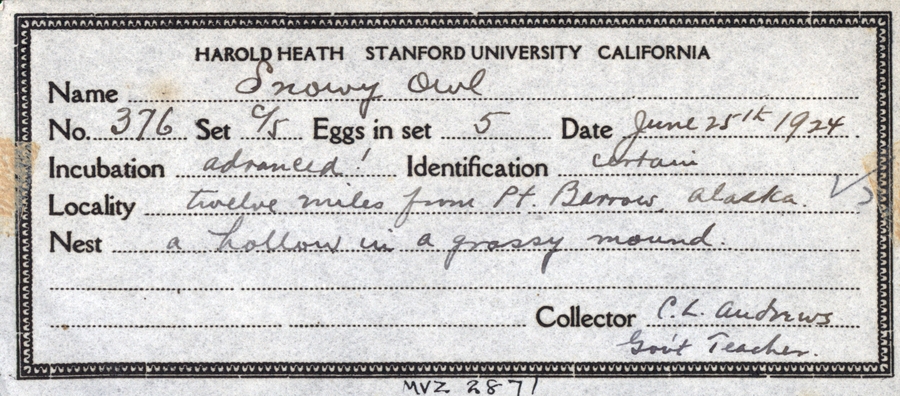 HAROLD HEATH STANFORD UNIVERSITY CALIFORNIA
Name Snowy Owl
No. 376 Set c/5 Eggs in set 5 Date June 25th 1924.
Incubation advanced! Identification certain
Locality twelve miles from Pt. Barrow, Alaska.
Nest a hollow in a grassy mound.
Collector C. L. Andrews
Gov't Teacher.
MVZ 2871